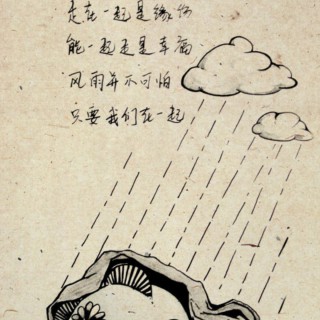 走在一起是缘份
能一起走是幸福
风雨并不可怕
只要我们在一起